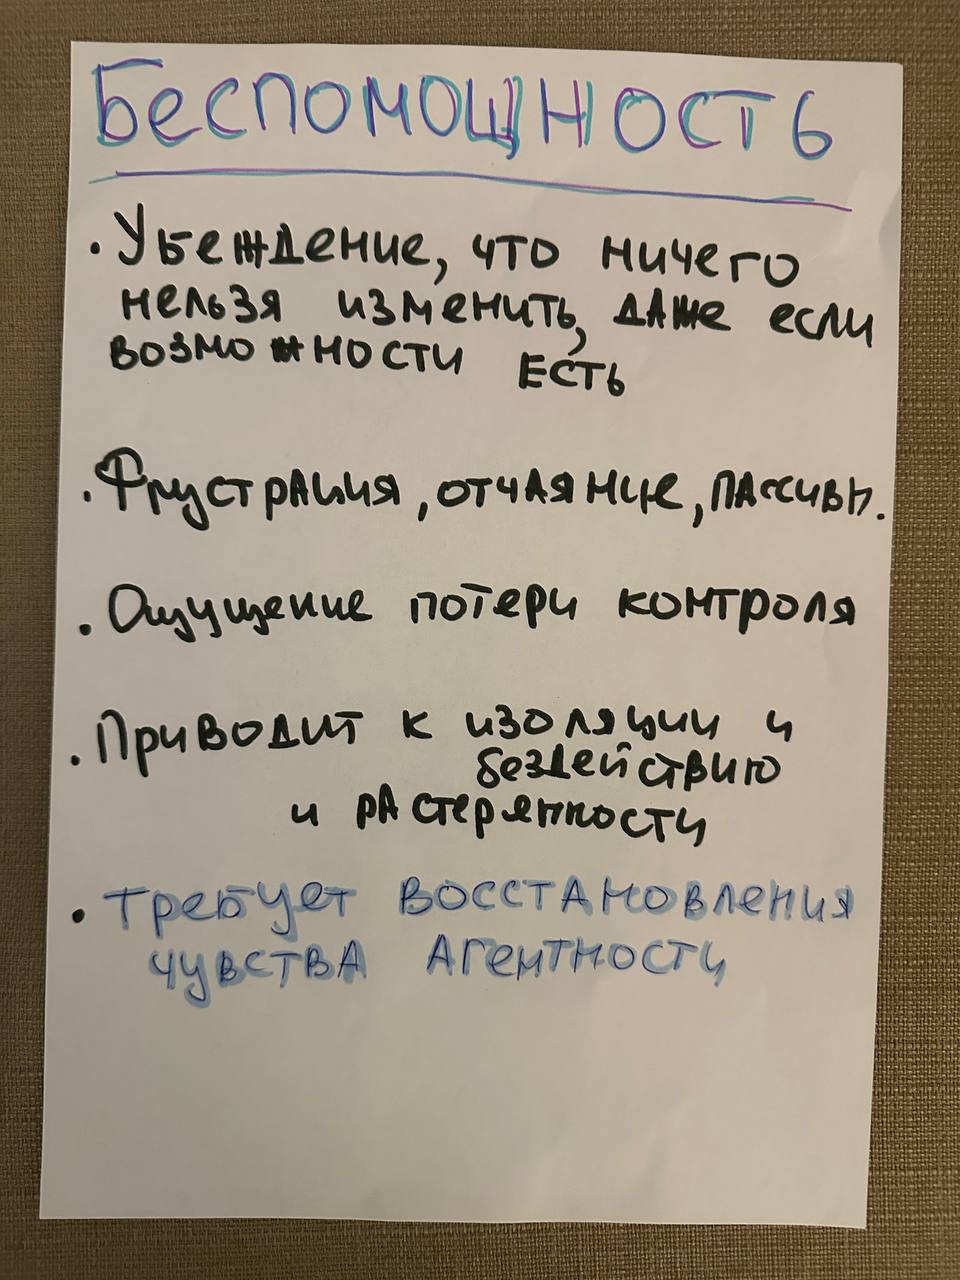 Беспомощность
• Убеждение, что ничего
нельзя изменить, даже если
возможности есть
• Фрустрация, отчаяние, пассивн.
• Ощущение потери контроля
• Приводит к изоляции и
бездействию
и растерянности
• Требует восстановления
чувства агентности